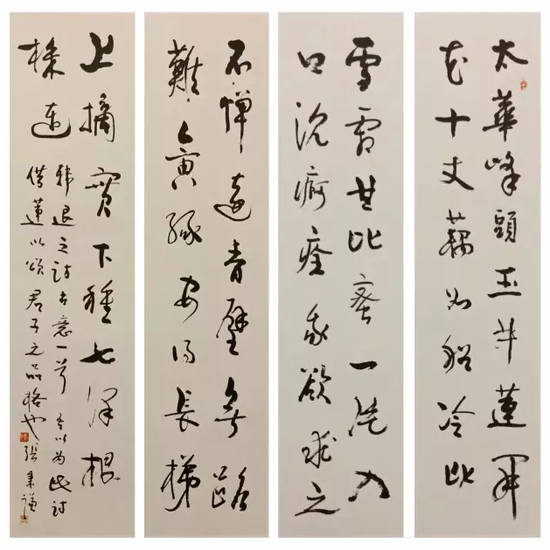 太華峰頭玉井蓮開
花十丈藕如船冷比
雪霜甘比蜜一片入
口沈痾痊我欲求之
不憚遠青壁無路
難夤緣安得長梯
上摘實下種七澤根
株連
韓退之詩古意一首 余以為此詩
借蓮以頌君子之品格也 張